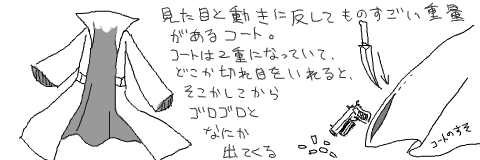 見た目と動きに反してものすごい重量
があるコート。
コートは2重になっていて、
どこか切れ目をいれると、
そこかしてから
ゴロゴロと
なにか
出てくる
コートのすそ